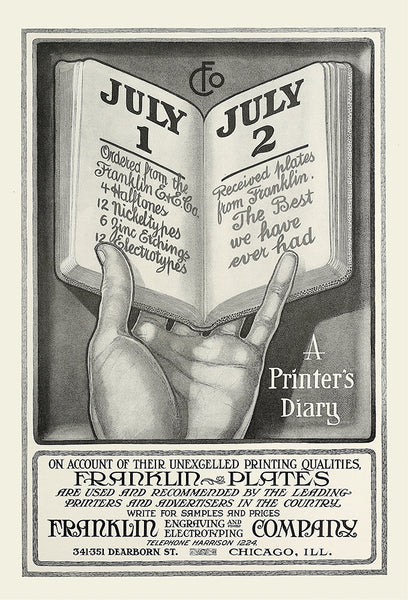 CFO
JULY
1
Ordered from the
Franklin E & E Co.
4 Halftones
12 Nickeltypes
6 Zinc Etchings
12 Electrotypes
JULY
2
Received plates
from Franklin.
The Best
we have
ever had
A
Printer's
Diary
ON ACCOUNT OF THEIR UNEXCELLED PRINTING QUALITIES,
FRANKLIN PLATES
ARE USED AND RECOMMENDED BY THE LEADING
PRINTERS AND ADVERTISERS IN THE COUNTRY.
WRITE FOR SAMPLES AND PRICES
FRANKLIN ENGRAVING AND ELECTROTYPING COMPANY
TELEPHONE HARRISON 1224.
341-351 DEARBORN ST. CHICAGO, ILL.